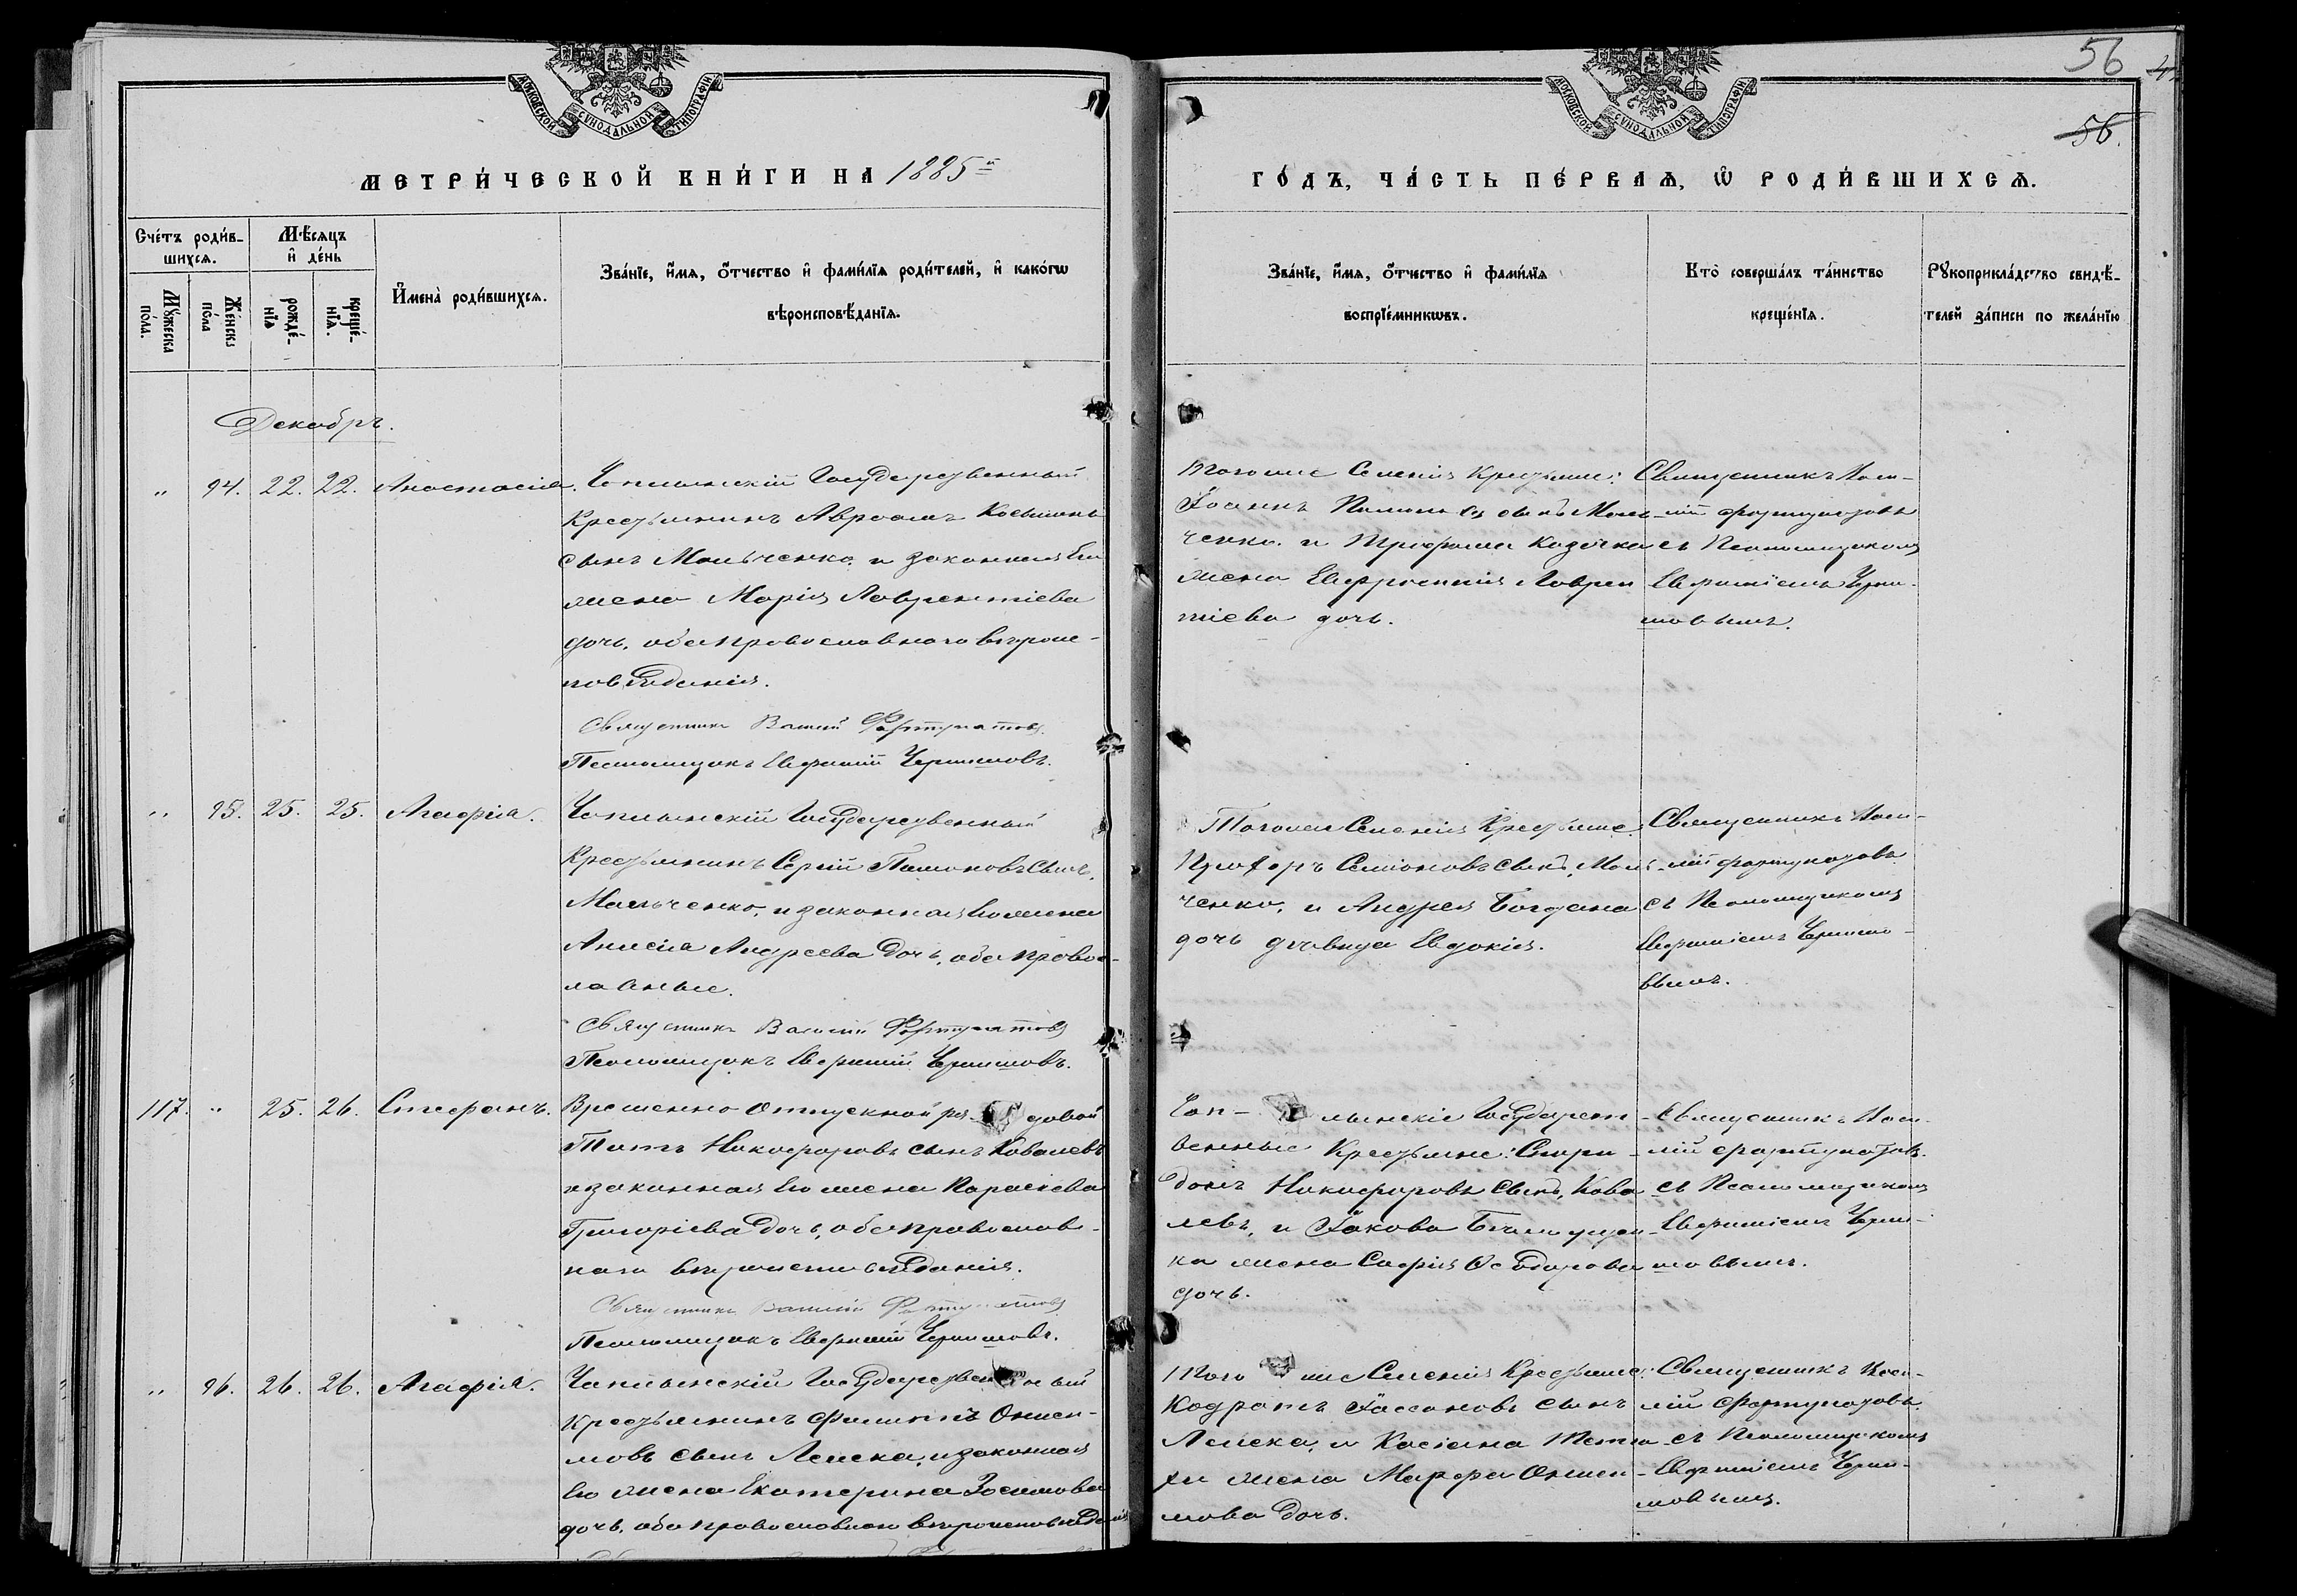 56
56.
МОСКОВСКОЙ СУНОДАЛЬНОЙ ТИПОГРАФІИ
МОСКОВСКОЙ СУНОДАЛЬНОЙ ТИПОГРАФІИ
МЕТРИ́ЧЕСКОЙ КНИ́ГИ НА 1885й
ГО́ДЪ, ЧА́СТЬ ПЕ́РВАѦ, Ѡ҆ РОДИ́ВШИХСѦ.
Сче́тъ роди́в-
шихсѧ.
Мѣ́сѧцъ
и҆ де́нь
Мꙋ́жеска
по́ла.
Же́нска
по́ла
рожде́-
нїѧ
креще́-
нїѧ.
И҆мена̀ роди́вшихсѧ.
Зва́нїе, и҆́мѧ, ѻ҆́тчество и҆ фами́лїѧ роди́телей, и҆ како́гѡ
вѣроисповѣ́данїѧ.
Зва́нїе, и҆́мѧ, ѻ҆́тчество и҆ фами́лїѧ
воспрїе́мникѡвъ.
Кто̀ соверша́лъ та́инство
креще́нїѧ.
Рꙋкоприкла́дство свидѣ́-
телей за́писи по жела́нїю
Декабрь.
" 94. 22. 22. Анастасія.
Чаплынскій Государственный
Крестьянинъ Авраамъ Косьминъ
сынъ Мальченко, и законная Его
жена Марія Лаврентіева
дочь, оба православнаго вѣроис-
повѣданія.
Священникъ Василій Фортунатовъ
Псаломщикъ Евфимій Чернишовъ.
Тогоже Селенія Крестьяне:
Іоаннъ сынъ Маль-
ченко, и Трофима Козачка
жена Евфросинія Лаврен
тіева дочь.
Священникъ Васи-
лій Фортунатовъ
съ Псаломщикомъ
Евфиміемъ Черни-
шовымъ.
" 95. 25. 25. Агафія.
Чаплынскій Государственный
Крестьянинъ Сергій сынъ
Мальченко, и законная Его жена
Анисія Андреева дочь, оба правос-
лавные.
Священникъ Василій Фортунатовъ
Псаломщикъ Евфимій Чернишовъ.
Тогоже Селенія Крестьяне:
Прохоръ Семіоновъ сынъ Маль-
ченко, и Андрея Богдана
дочь дѣвица Евдокія.
Священникъ Васи-
лій Фортунатовъ
съ Псаломщикомъ
Евфиміемъ Чернишо-
вымъ.
117. " 25. 26. Стефанъ.
Временно отпускной рядовой
Титъ Никифоровъ сынъ Ковалевъ
и законная Его жена Параскева
Григоріева дочь, оба православ-
наго вѣроисповѣданія.
Священникъ Василій Фортунатовъ
Псаломщикъ Евфимій Чернишовъ.
Чап-лынскіе Государст-
венные Крестьяне: Спири-
донъ Никифоровъ сынъ Кова
левъ, и Іакова
ка жена Софія Ѳеодорова
дочь.
Священникъ Васи-
лій Фортунатовъ
съ Псаломщикомъ
Евфиміемъ Черни-
шовымъ.
" 96. 26. 26. Агафія.
Чаплынскій Государственный
Крестьянинъ Филиппъ Ониси-
мовъ сынъ и законная
Его жена Екатерина Зосимова
дочь, оба православнаго вѣроисповѣданія
Того же Селенія Крестьяне:
Кодратъ сынъ
и Касіана
жена Марфа Ониси-
мова дочь.
Священникъ Васи-
лій Фортунатовъ
съ Псаломщикомъ
Евфиміемъ Черни-
шовымъ.